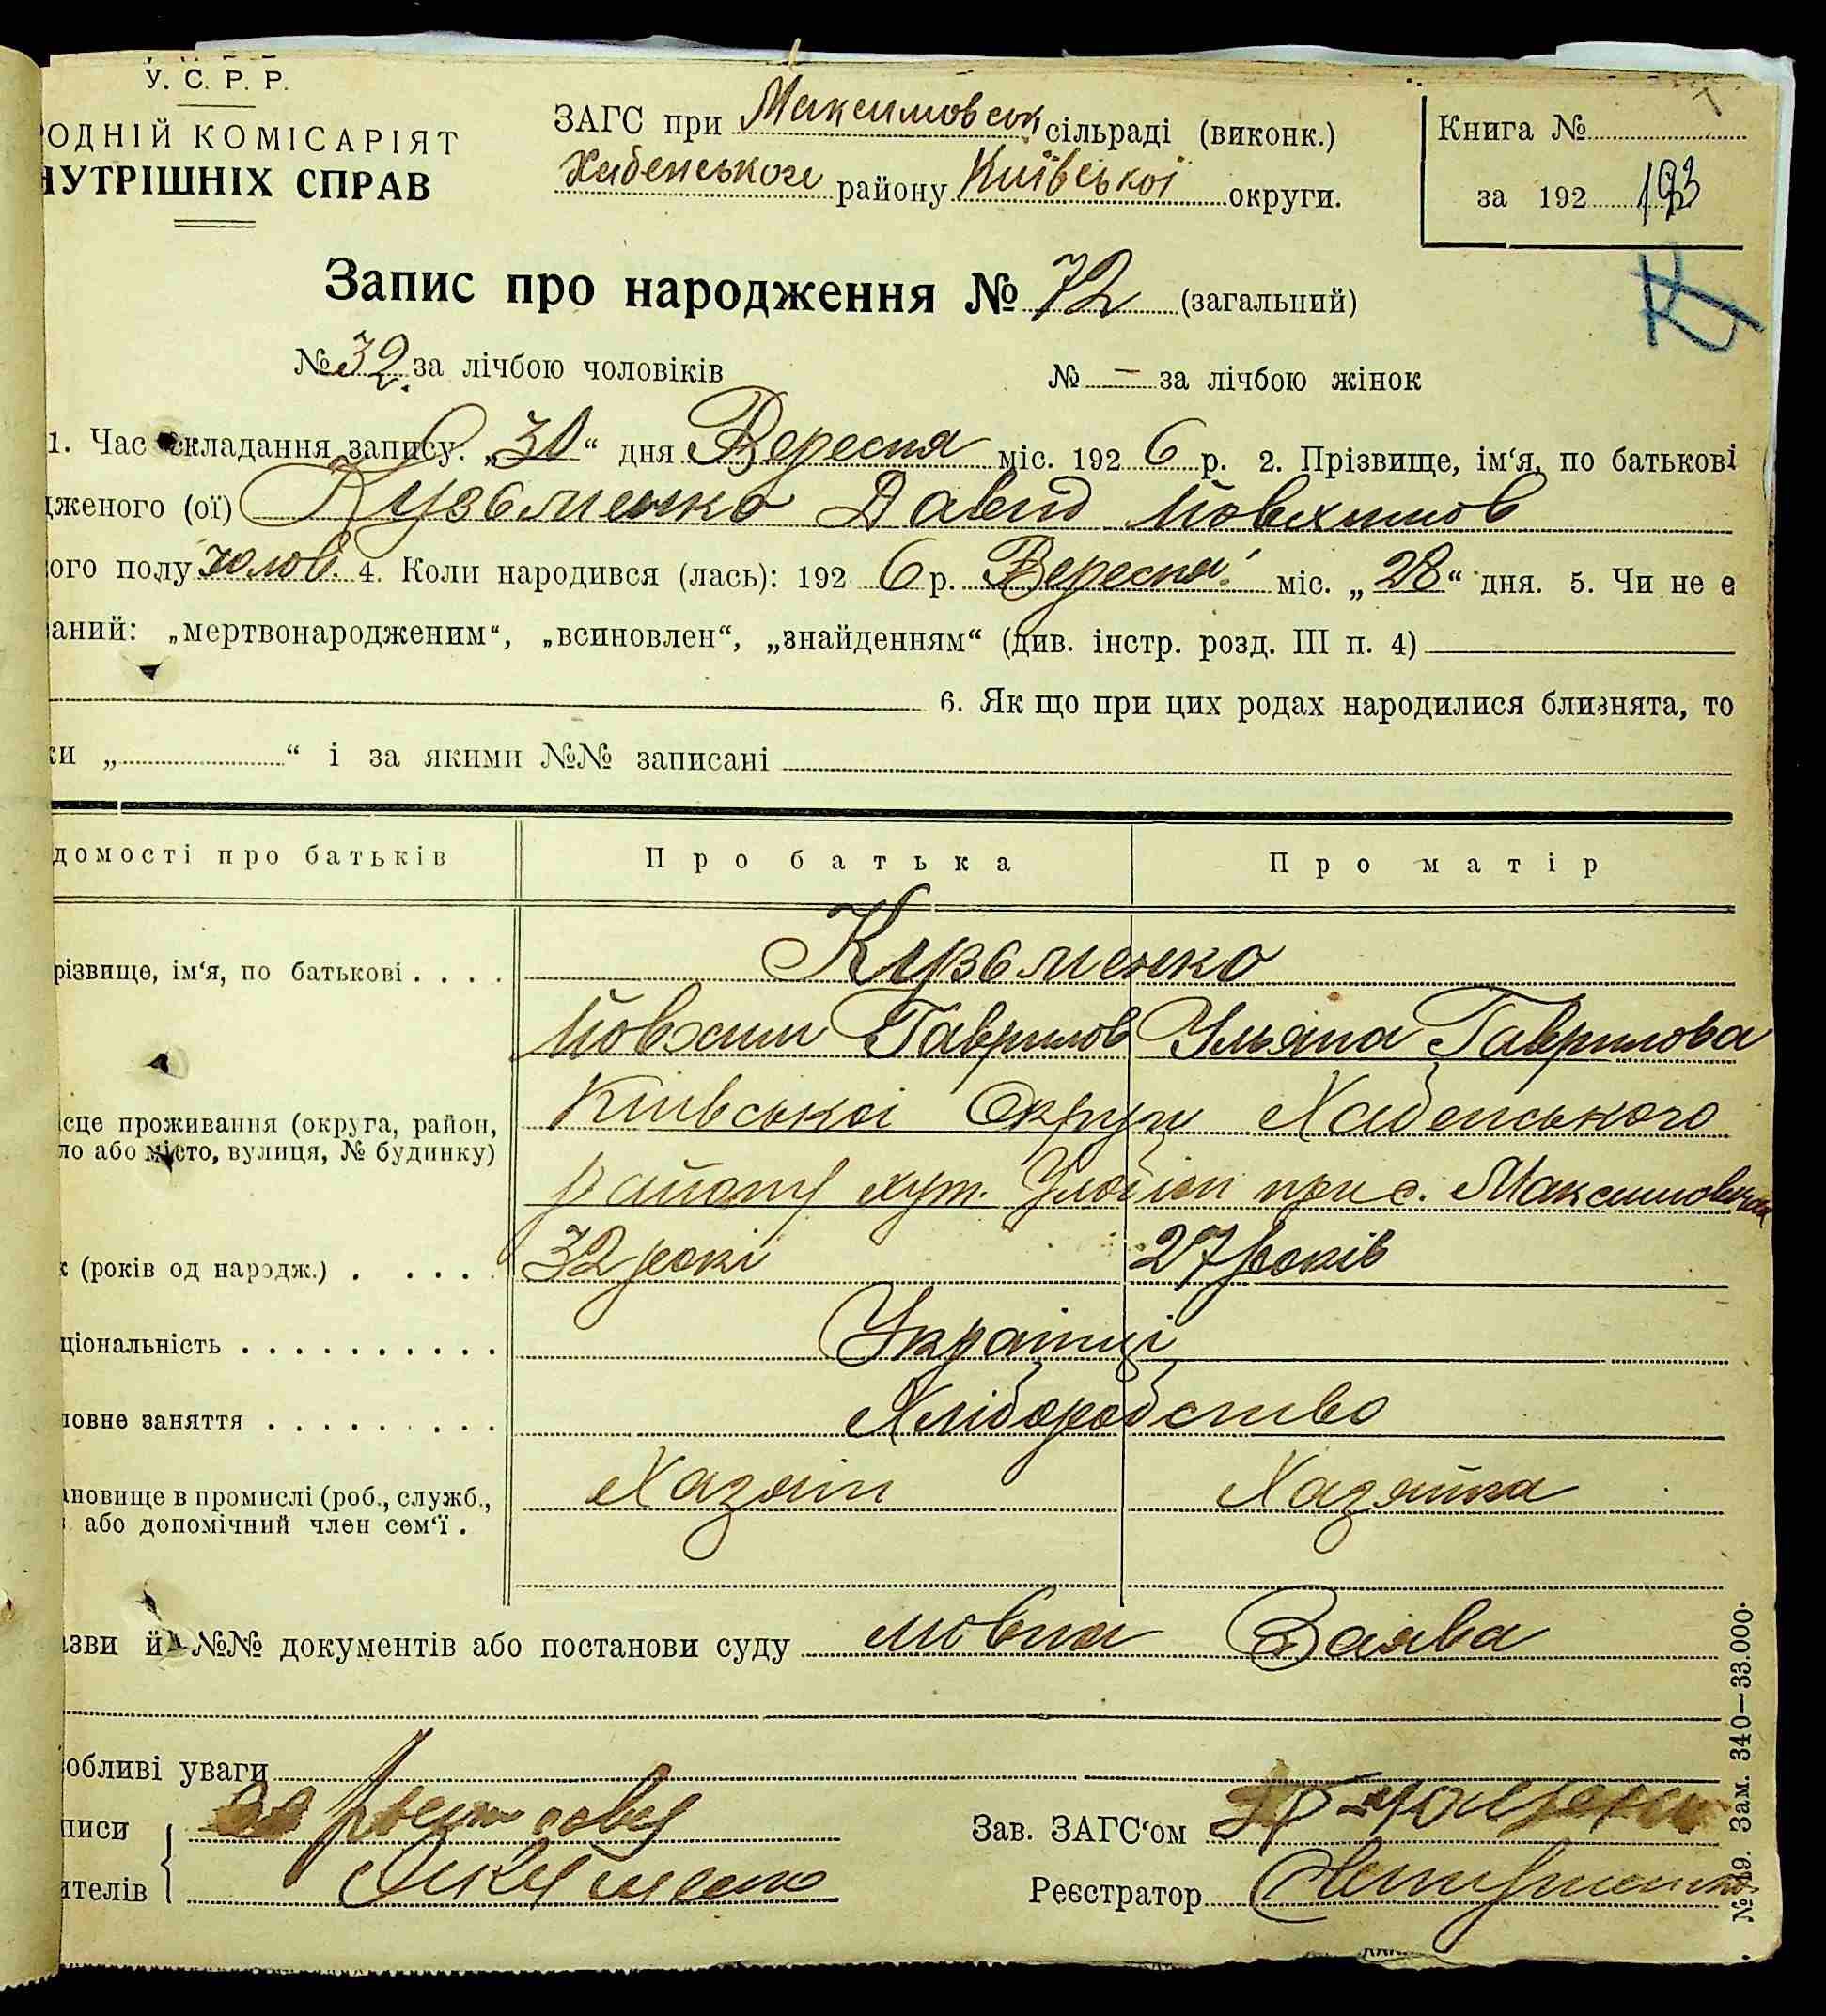 У. С. Р. Р.
ОДНІЙ КОМІСАРІЯТ
НУТРІШНІХ СПРАВ
ЗАГС при Максимовськ сільраді (виконк.)
Хабенського району Київської округи.
Книга №
за 192 193
Запис про народження № 72 (загальний)
№ 32. за лічбою чоловіків № — за лічбою жінок
1. Час складання запису: „30“ дня Вересня міс. 192 6 р. 2. Прізвище, ім‘я, по батькові
дженого (ої) Кузьменко Давид Йовхимов
ого полу чолов. 4. Коли народився (лась): 192 6 р. Вересня міс. „28“ дня. 5. Чи не є
аний: „мертвонародженим“, „всиновлен“, „знайденням“ (див. інстр. розд. III п. 4)
6. Як що при цих родах народилися близнята, то
ки „ “ і за якими №№ записані
домості про батьків Про батька Про матір
різвище, ім‘я, по батькові . . . . Кузьменко
Йовхим Гаврилов Ульяна Гаврилова
ісце проживання (округа, район, Київської Округи Хабенського
ло або місто, вулиця, № будинку)
району хут. при с. Максимовичах
к (років од народж.) . . . . . 32 роки 27 років
ціональність . . . . . . . . . . Українці
ловне заняття . . . . . . . . . Хліборобство
ановище в промислі (роб., служб., Хазяїн Хазяйка
або допомічний член сем‘ї .
азви й №№ документів або постанови суду мовна Заява
обливі уваги
писи
Зав. ЗАГС‘ом
ителів
Реєстратор
№ 729. Зам. 340—33.000.